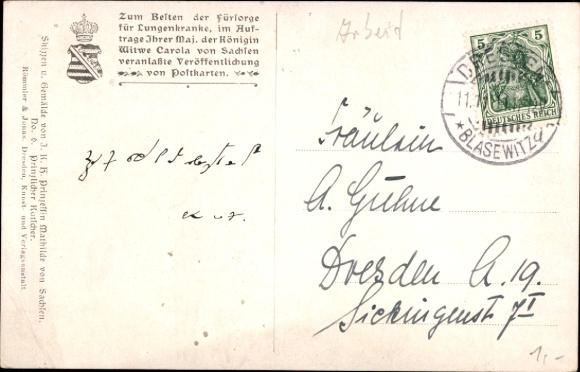 Zum Besten der Fürsorge
für Lungenkranke, im Auf-
trage Ihrer Maj. der Königin
Witwe Carola von Sachsen
veranlaßte Veröffentlichung
von Postkarten.
Skizzen u. Gemälde von J. K. H. Prinzessin Mathilde von Sachsen.
No. 6. Prinzlicher Kutscher.
Römmler & Jonas, Dresden, Kunst- und Verlagsanstalt.
5 5
DEUTSCHES REICH
DRESDEN
11.
★ BLASEWITZ
Fräulein
A. Gühne
Dresden A. 19.
Sickingenst 7 II
1,-